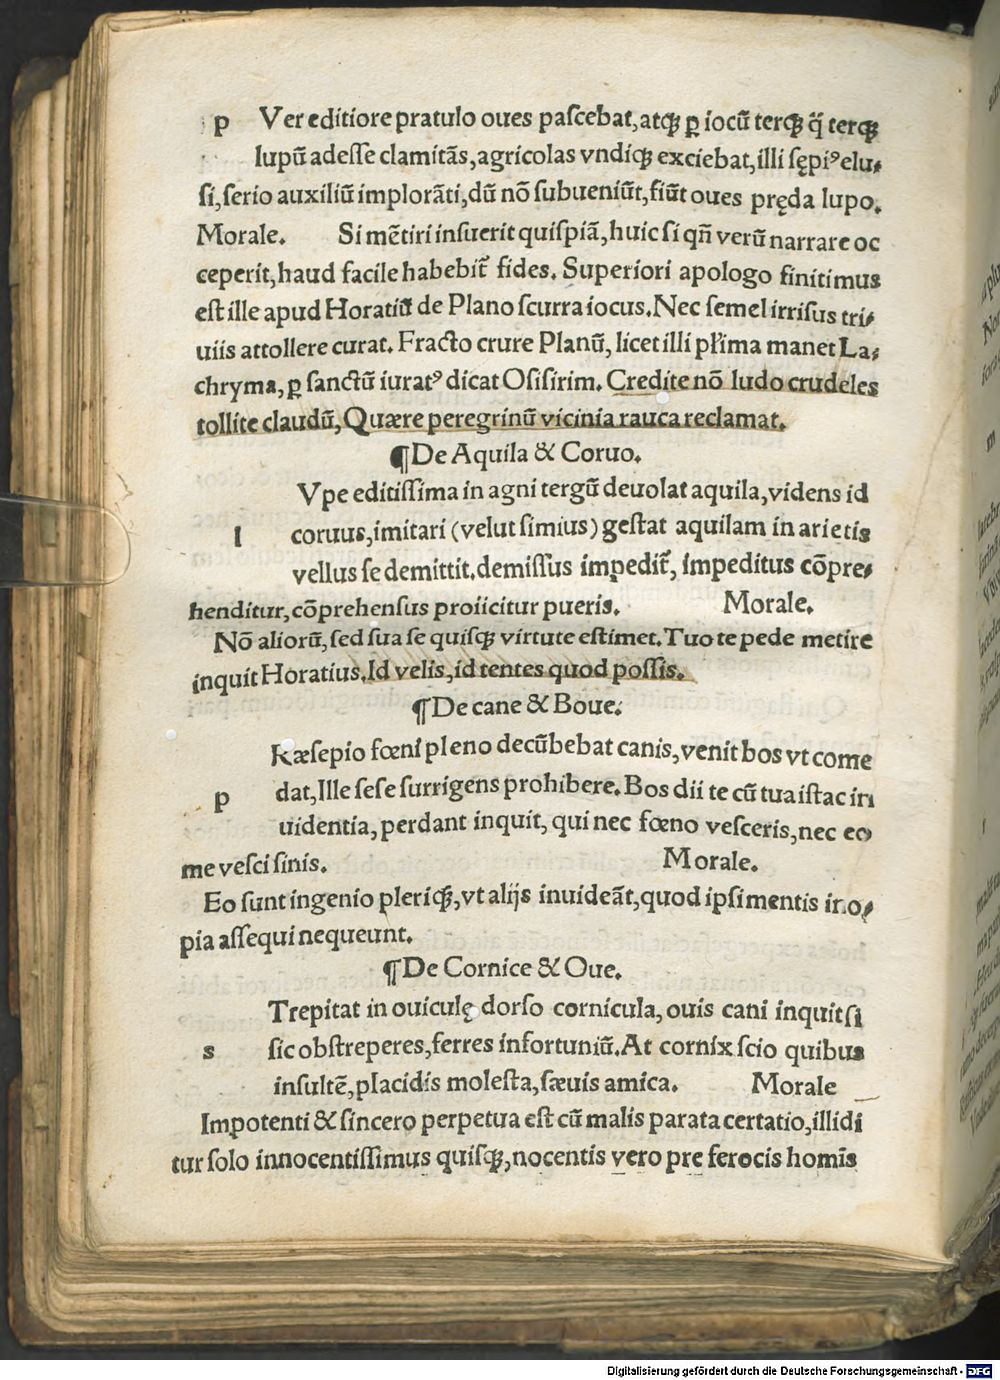 p Ver editiore pratulo oues pascebat, atqꝫ ꝑ iocū terqꝫ q̈ terqꝫ
lupū adesse clamitās, agricolas vndiqꝫ exciebat, illi sępiꝰ elu⸗
si, serio auxiliū implorāti, dū nō subueniūt, fiūt oues pręda lupo.
Morale. Si mētiri insuerit quispiā, huic si qñ verū narrare oc
ceperit, haud facile habebit᷑ fides. Superiori apologo finitimus
est ille apud Horatiū de Plano scurra iocus. Nec semel irrisus tri⸗
uiis attollere curat. Fracto crure Planū, licet illi pl̃ima manet La⸗
chryma, ꝑ sanctū iuratꝰ dicat Osisirim. Credite nō ludo crudeles
tollite claudū, Quære peregrinū vicinia rauca reclamat.
¶De Aquila & Coruo.
Vpe editissima in agni tergū deuolat aquila, videns id
l coruus, imitari (velut simius) gestat aquilam in arietis
vellus se demittit. demissus impedit᷑, impeditus cōpre⸗
henditur, cōprehensus proiicitur pueris. Morale.
Nō aliorū, sed sua se quisqꝫ virtute estimet. Tuo te pede metire
inquit Horatius. Id velis, id tentes quod possis.
¶De cane & Boue.
Ræsepio fœni pleno decūbebat canis, venit bos vt come
p dat, Ille sese surrigens prohibere. Bos dii te cū tua istac in
uidentia, perdant inquit, qui nec fœno vesceris, nec eo
me vesci sinis. Morale.
Eo sunt ingenio pleriqꝫ, vt alijs inuideāt, quod ipsi mentis ino⸗
pia assequi nequeunt.
¶De Cornice & Oue.
Trepitat in ouiculę dorso cornicula, ouis cani inquit si
s sic obstreperes, ferres infortuniū. At cornix scio quibus
insultē, placidis molesta, sæuis amica. Morale
Impotenti & sincero perpetua est cū malis parata certatio, illidi
tur solo innocentissimus quisqꝫ, nocentis vero pre ferocis homīs
Digitalisierung gefördert durch die Deutsche Forschungsgemeinschaft - DFG